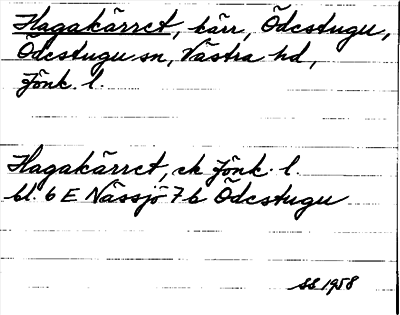 Hagakärret, kärr, Ödestugu,
Ödestugu sn, Västra hd,
Jönk. l.
Hagakärret, ek Jönk. l.
bl. 6 E Nässjö 7 b Ödestugu
SS 1958